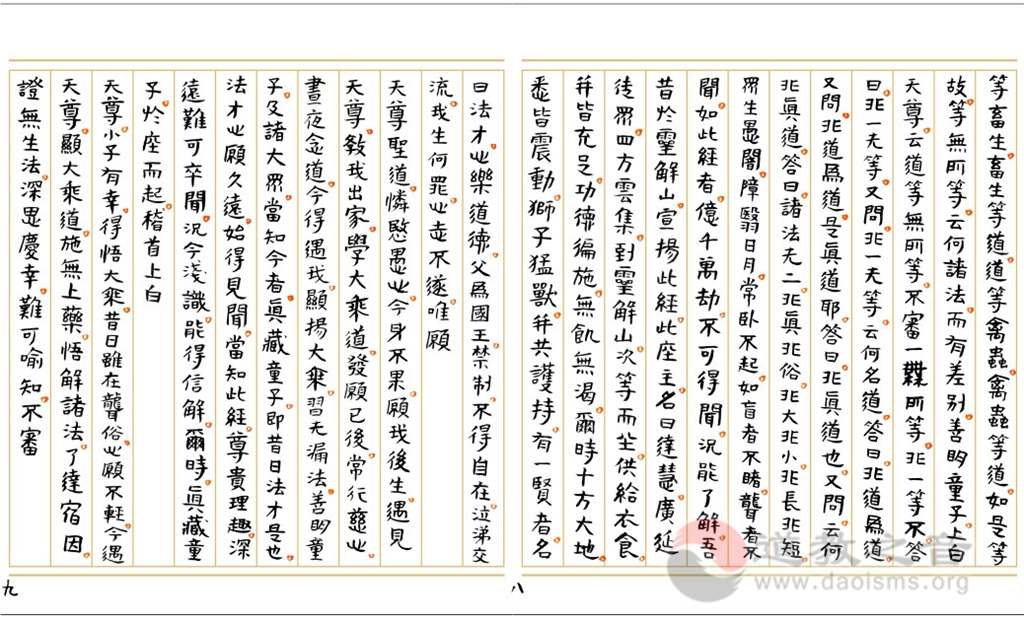 等畜生畜生等道道等禽蟲禽蟲等道如是等
故等無所等云何諸法而有差别善明童子上白
天尊云道等無所等不審一無所等非一等不答
曰非一无等又問非一无等云何名道答曰非道爲道
又問非道爲道是真道耶答曰非真道也又問云何
非真道答曰諸法无二非真非俗非大非小非長非短
眾生愚闇障翳日月常卧不起如盲者不睹聾者不
聞如此經者億千萬劫不可得聞況能了解吾
昔於靈解山宣揚此經此座主名曰達慧廣延
徒眾四方雲集到靈解山次等而坐供給衣食
并皆充足功德徧施無飢無渴爾時十方大地
悉皆震動獅子猛獸并共護持有一賢者名
八
曰法才心樂道德父爲國王禁制不得自在泣涕交
流我生何罪心志不遂唯願
天尊聖道憐愍愚心今身不果願我後生遇見
天尊教我出家學大乘道發願已後常行慈心
晝夜念道今得遇我顯揚大乘習无漏法善明童
子及諸大眾當知今者真藏童子即昔日法才是也
法才心願久遠始得見聞當知此經尊貴理趣深
遠難可卒聞況今淺識能得信解爾時真藏童
子於座而起稽首上白
天尊小子有幸得悟大乘昔日雖在聾俗心願不輕今遇
天尊顯大乘道施無上藥悟解諸法了達宿因
證無生法深思慶幸難可喻知不審
九
道教之音
www.daoisms.org